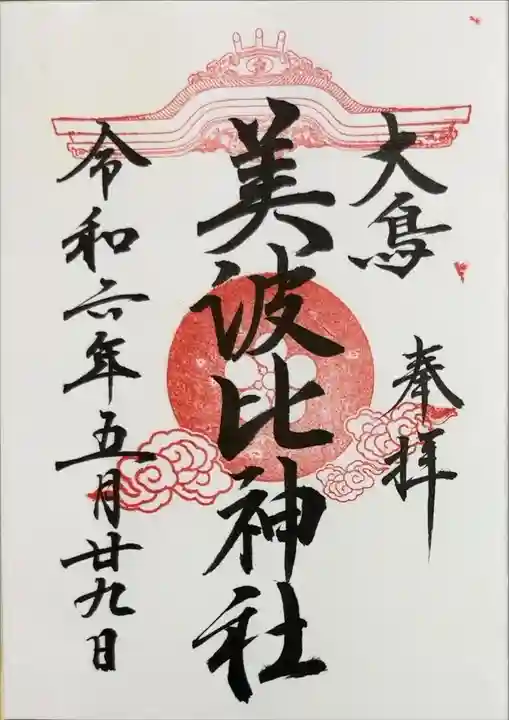 大鳥
奉拝
美波比神社
令和六年五月廿九日